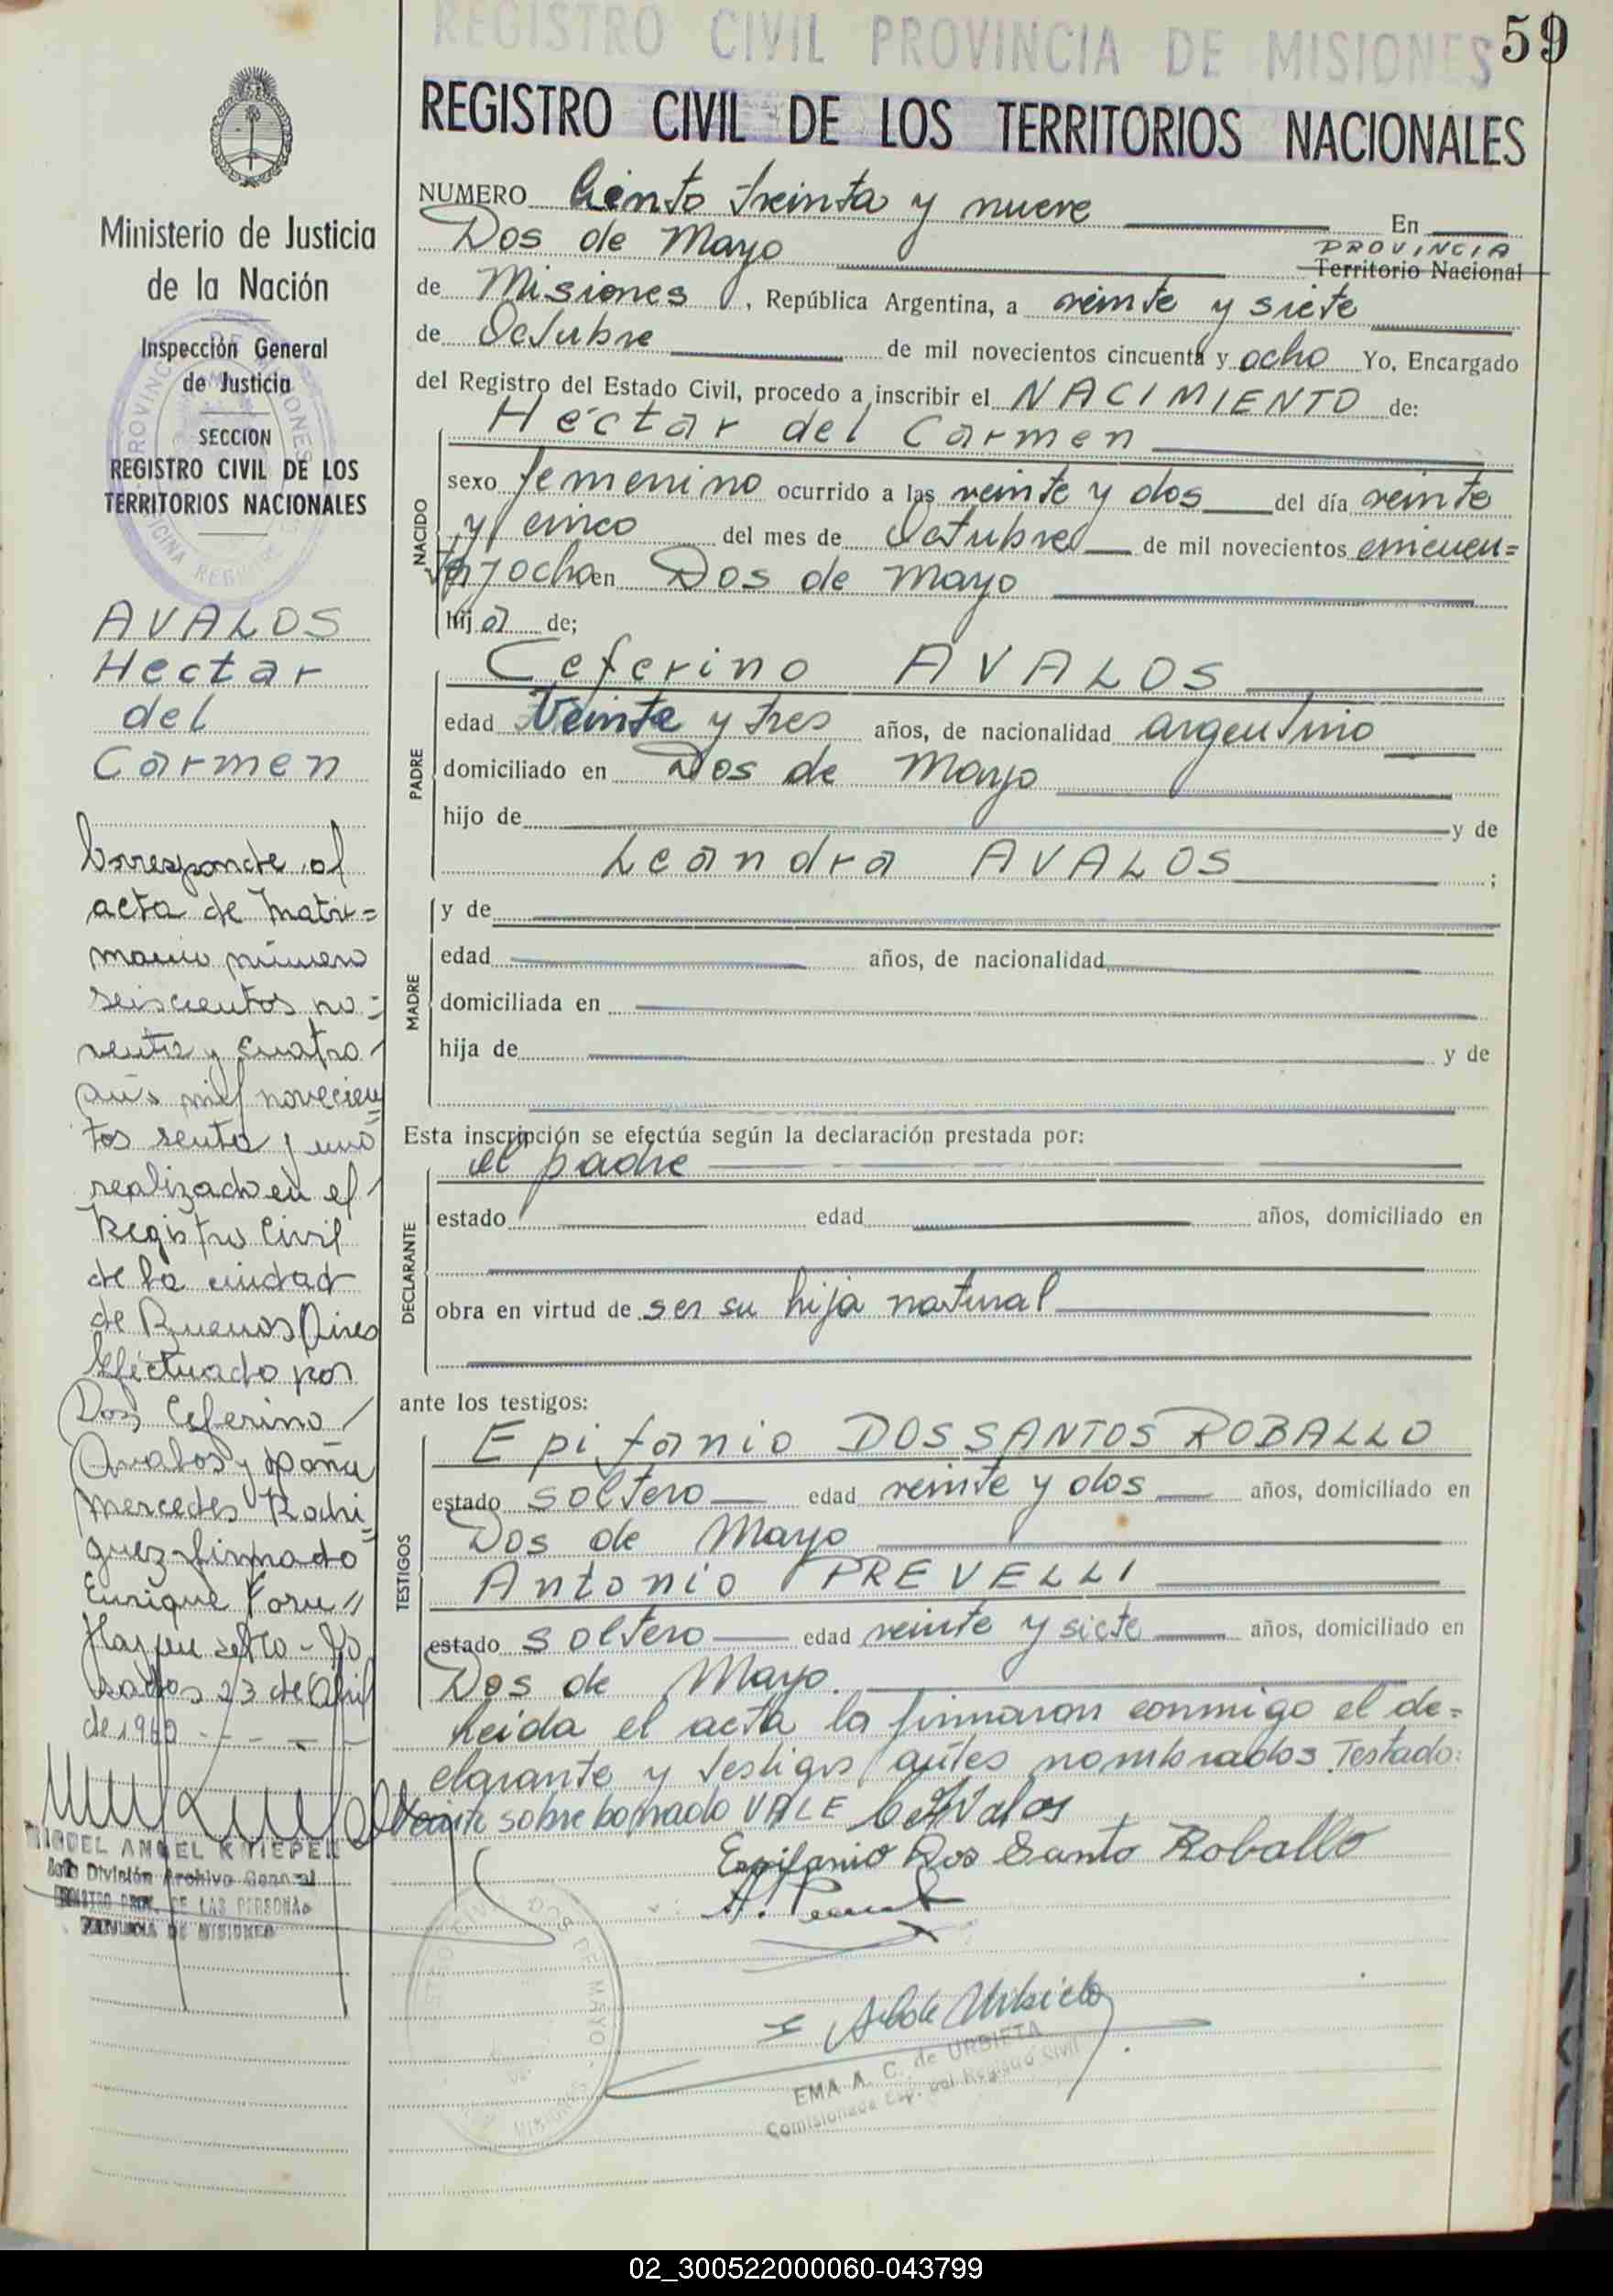 REGISTRO CIVIL PROVINCIA DE MISIONES
59
REGISTRO CIVIL DE LOS TERRITORIOS NACIONALES
Ministerio de Justicia
de la Nación
Inspección General
de Justicia
SECCION
REGISTRO CIVIL DE LOS
TERRITORIOS NACIONALES
AVALOS
Hectar
del
Carmen
Corresponde al
acta de Matri=
monio número
seiscientos no=
venta y cuatro
año mil novecien
tos
realizado en el
Registro Civil
de la ciudad
de Buenos Aires
Efectuado por
Don Ceferino
Avalos y doña
Mercedes Rodri=
guez firmado
Enrique
Hay un sello - Po
sadas 23 de Abril
de
MIGUEL ANGEL KNIEPER
División Archivo General
DE LAS PERSONAS
PROVINCIA DE MISIONES
NUMERO Ciento treinta y nueve En
Dos de Mayo PROVINCIA
Territorio Nacional
de Misiones, República Argentina, a veinte y siete
de Octubre de mil novecientos cincuenta y ocho Yo, Encargado
del Registro del Estado Civil, procedo a inscribir el NACIMIENTO de:
NACIDO
Hectar del Carmen
sexo femenino ocurrido a las veinte y dos del día veinte
y cinco del mes de Octubre de mil novecientos cincuen=
ta y ocho en Dos de Mayo
hija de;
PADRE
Ceferino AVALOS
edad Veinte y tres años, de nacionalidad argentino
domiciliado en Dos de Mayo
hijo de y de
Leandra AVALOS ;
MADRE
y de
edad años, de nacionalidad
domiciliada en
hija de y de
Esta inscripción se efectúa según la declaración prestada por:
DECLARANTE
el padre
estado edad años, domiciliado en
obra en virtud de ser su hija natural
ante los testigos:
TESTIGOS
Epifanio DOS SANTOS ROBALLO
estado soltero edad veinte y dos años, domiciliado en
Dos de Mayo
Antonio PREVELLI
estado soltero edad veinte y siete años, domiciliado en
Dos de Mayo.
Leida el acta la firmaron conmigo el de=
clarante y testigos antes nombrados. Testado:
Veinte sobre borrado VALE C. Avalos
Epifanio Dos Santo Roballo
A. de Urbieta
EMA A. C. de URBIETA
Comisionada Esp. del Registro Civil
02_300522000060-043799